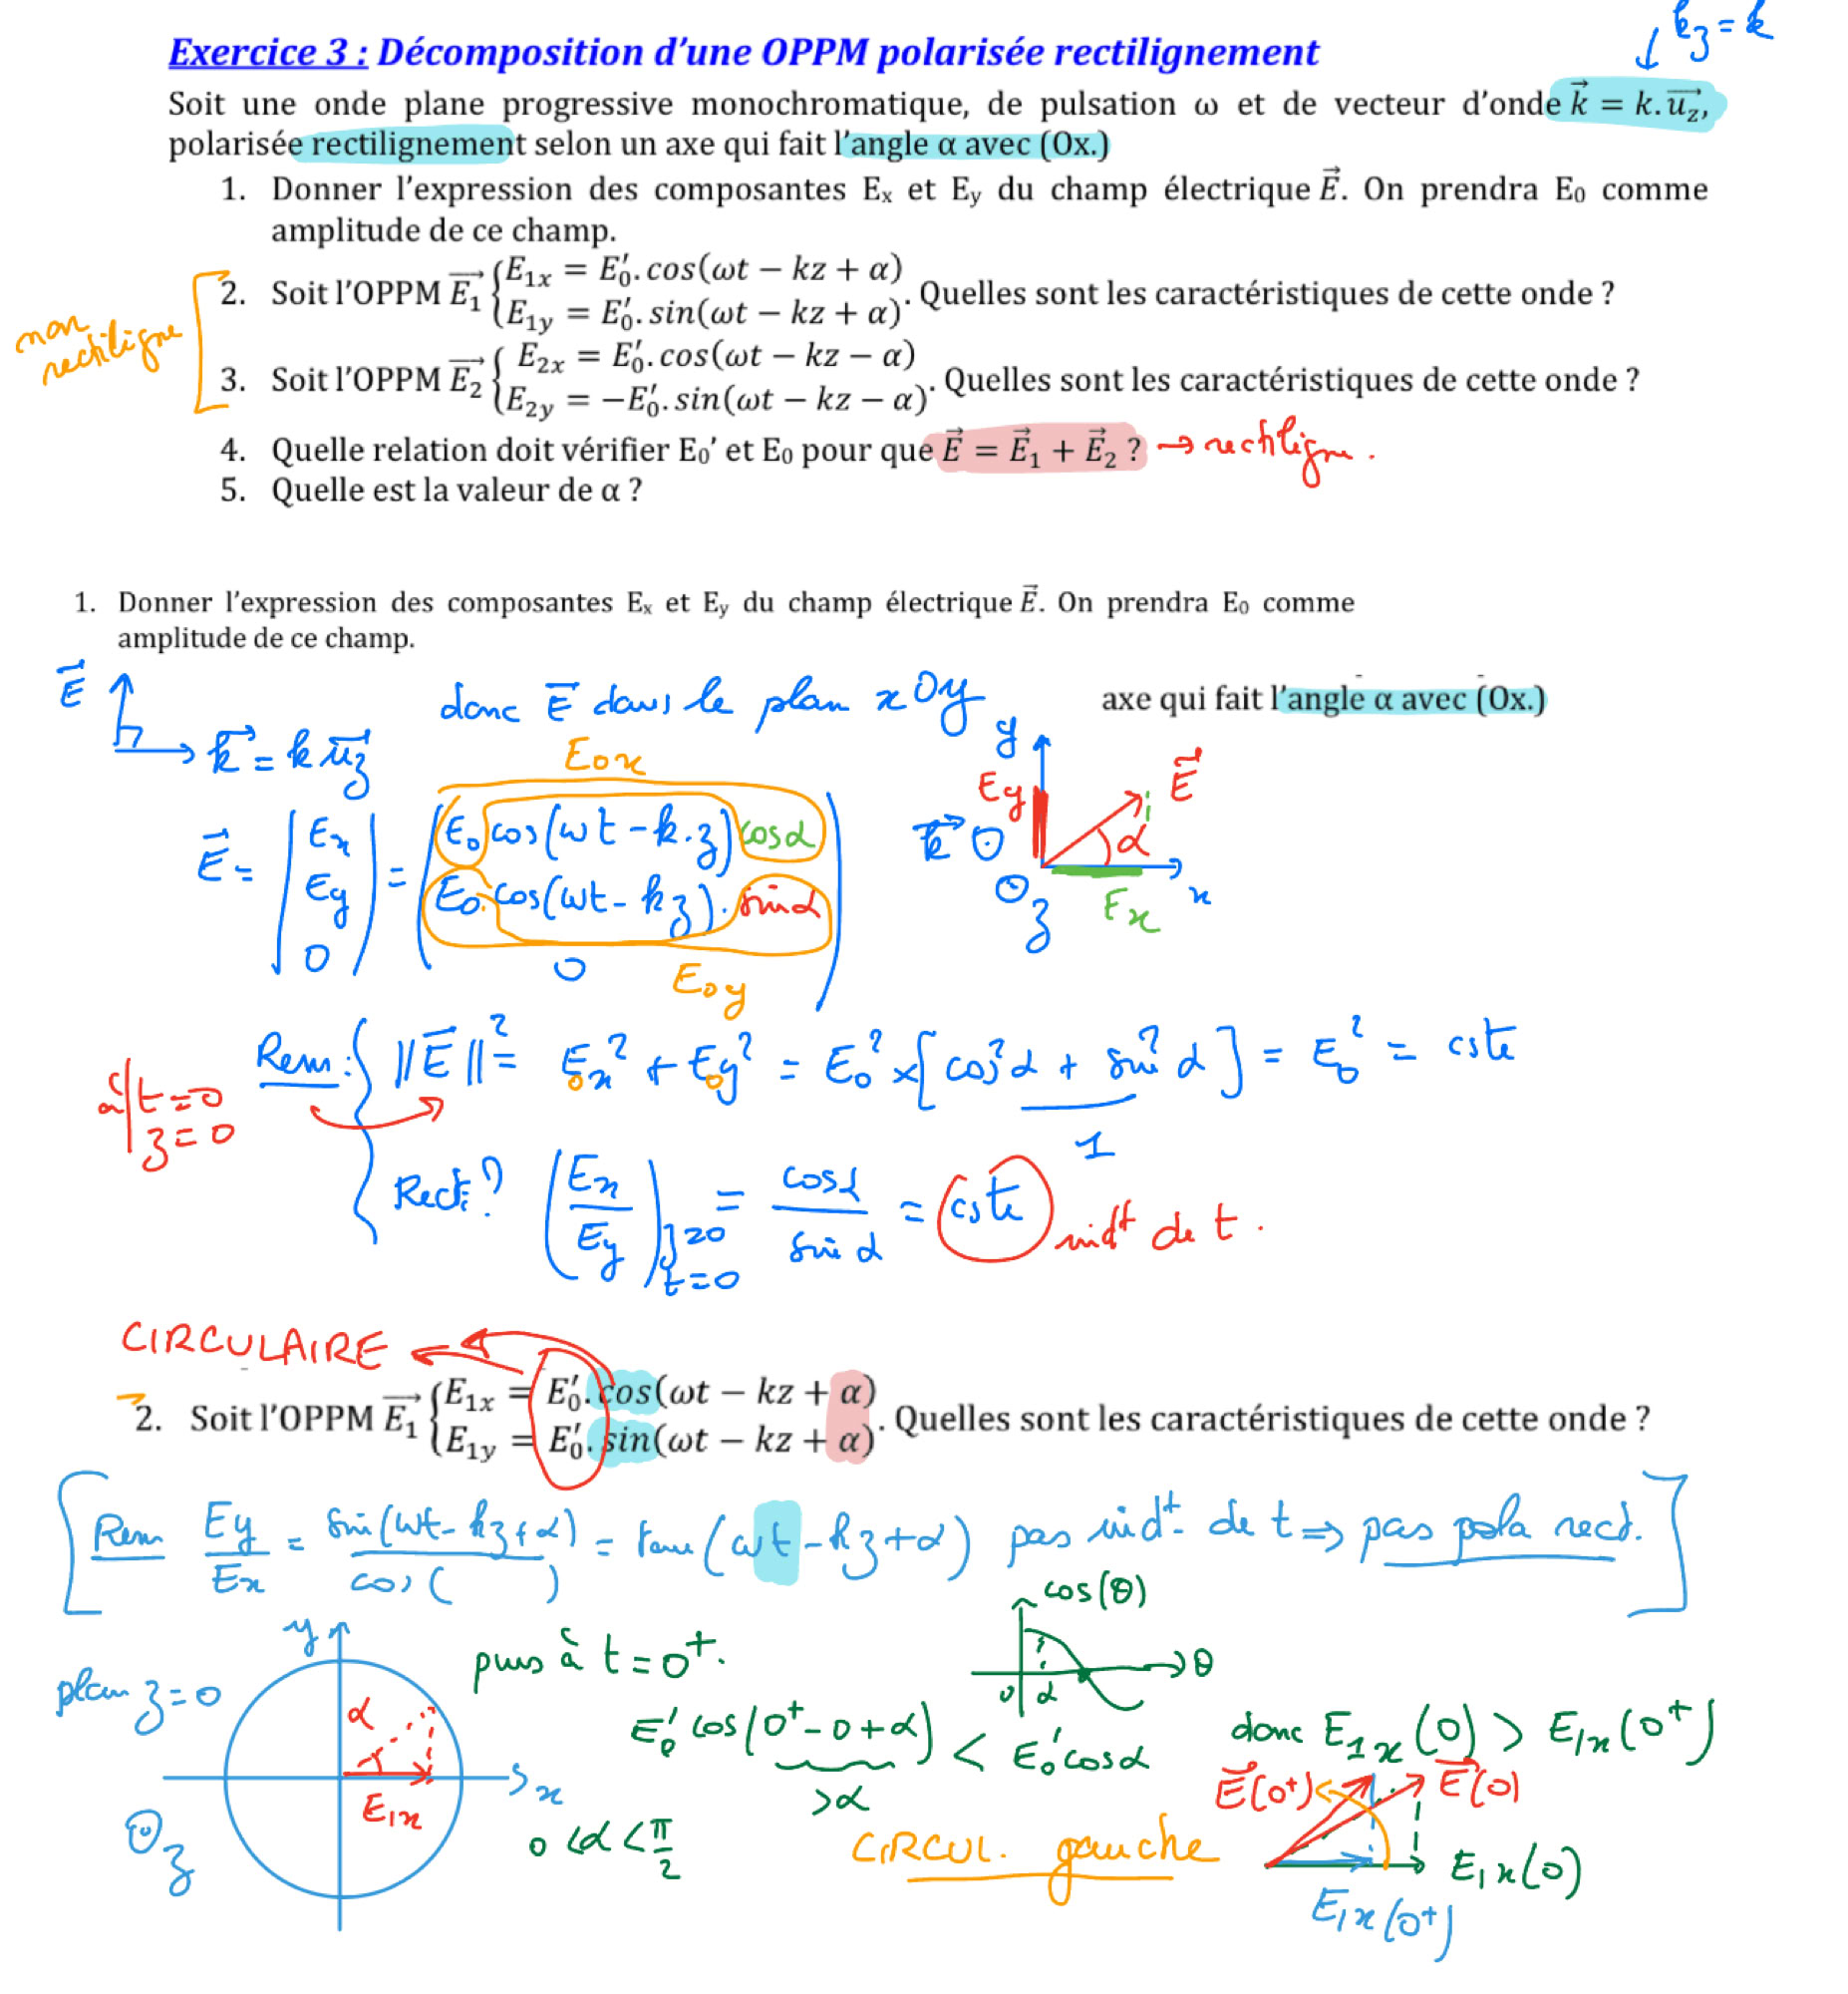 k₃ = k
Exercice 3 : Décomposition d'une OPPM polarisée rectilignement
Soit une onde plane progressive monochromatique, de pulsation ω et de vecteur d'onde k⃗ = k.u⃗_z,
polarisée rectilignement selon un axe qui fait l'angle α avec (Ox.)
1. Donner l'expression des composantes Eₓ et E_y du champ électrique E⃗. On prendra E₀ comme
amplitude de ce champ.
non rectiligne
2. Soit l'OPPM E₁⃗ { E₁ₓ = E₀′. cos(ωt − kz + α)
E₁y = E₀′. sin(ωt − kz + α) . Quelles sont les caractéristiques de cette onde ?
3. Soit l'OPPM E₂⃗ { E₂ₓ = E₀′. cos(ωt − kz − α)
E₂y = −E₀′. sin(ωt − kz − α) . Quelles sont les caractéristiques de cette onde ?
4. Quelle relation doit vérifier E₀' et E₀ pour que E⃗ = E⃗₁ + E⃗₂ ? → rectligne.
5. Quelle est la valeur de α ?
1. Donner l'expression des composantes Eₓ et E_y du champ électrique E⃗. On prendra E₀ comme
amplitude de ce champ.
E⃗
k⃗ = k u⃗z
donc E⃗ dans le plan xOy
axe qui fait l'angle α avec (Ox.)
E₀x
E⃗ = | Ex = ( E₀ cos(ωt − k.z) cosα
Ey E₀.cos(ωt − kz). sinα
0 0 )
E₀y
y Ey E⃗ α
k⃗ ⊙ x
⊙ z Ex
à t=0
z=0
Rem : ||E⃗||² = E₀x² + E₀y² = E₀² × [cos²α + sin²α] = E₀² = cste
1
Rect? (Ex/Ey) z=0 t=0 = cosα/sinα = cste indt de t.
CIRCULAIRE
2. Soit l'OPPM E₁⃗ { E₁ₓ = E₀′. cos(ωt − kz + α)
E₁y = E₀′. sin(ωt − kz + α) . Quelles sont les caractéristiques de cette onde ?
[Rem Ey/Ex = sin(ωt − kz + α)/cos( ) = tan(ωt − kz + α) pas indt de t ⇒ pas pola rect.]
plan z=0
y α E₁x x
⊙ z
puis à t = 0⁺.
cos(θ)
θ
0 α
E₀′ cos(0⁺ − 0 + α) < E₀′ cosα
>α
0 < α < π/2
donc E₁x(0) > E₁x(0⁺)
E⃗(0⁺) E⃗(0)
CIRCUL. gauche
E₁x(0)
E₁x(0⁺)